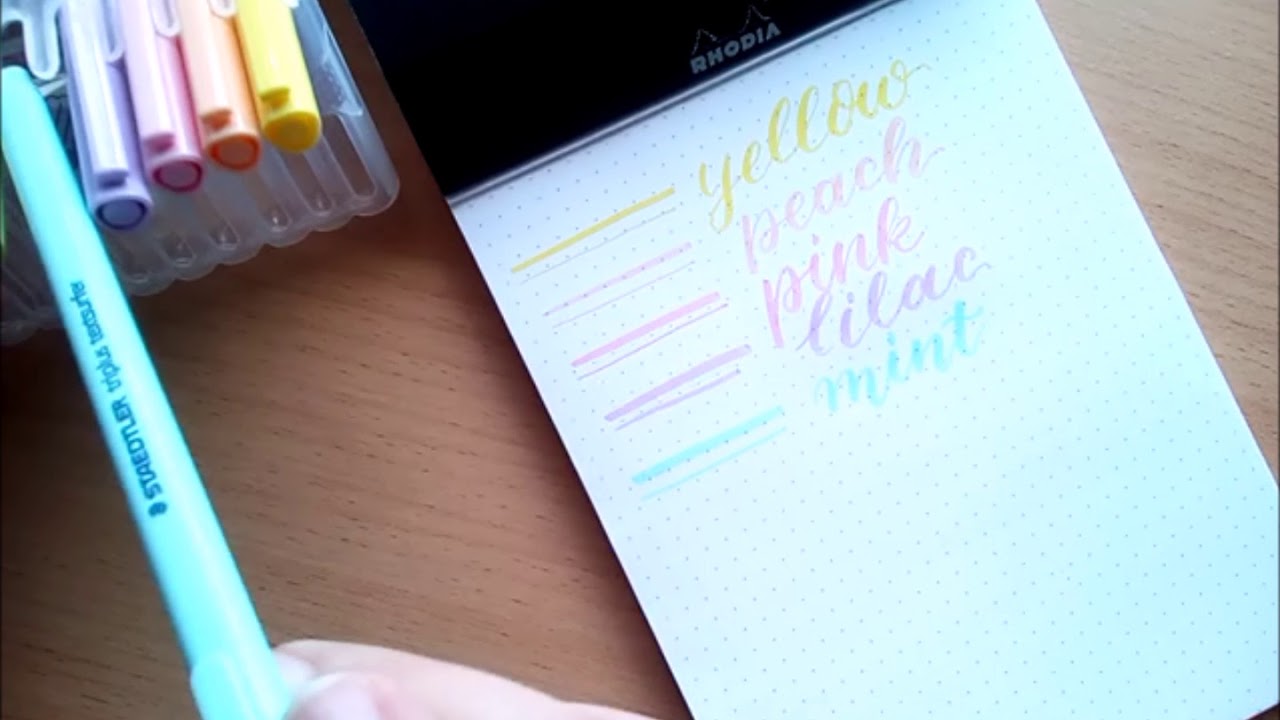 RHODIA
yellow
peach
pink
lilac
mint
STAEDTLER triplus textsurfer